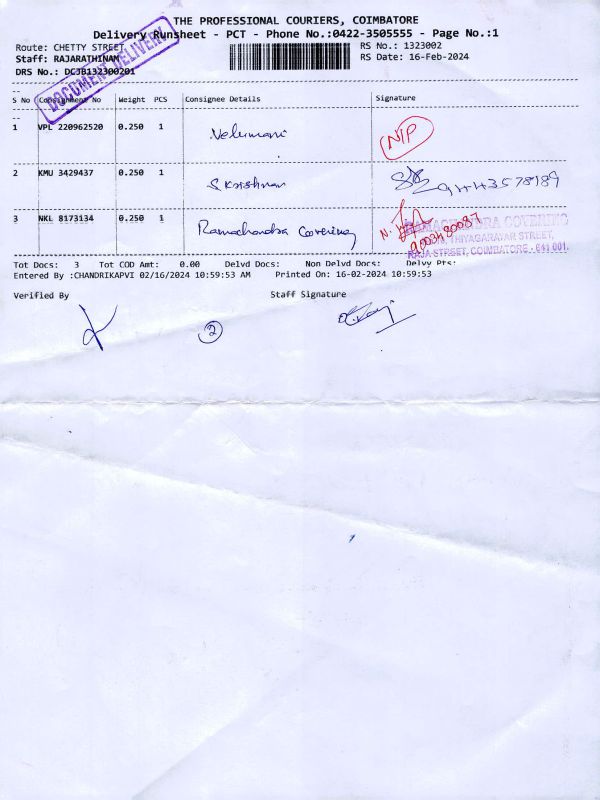 THE PROFESSIONAL COURIERS, COIMBATORE
Delivery Runsheet - PCT - Phone No.:0422-3505555 - Page No.:1
Route: CHETTY STREET
RS No.: 1323002
Staff: RAJARATHINAM
RS Date: 16-Feb-2024
DRS No.: DCJB132300201
DOCUMENT DELIVERY
S No Consignment No Weight PCS Consignee Details Signature
1 VPL 220962520 0.250 1 Velumani NIP
2 KMU 3429437 0.250 1 S Krishnan
3 NKL 8173134 0.250 1 Ramachandra Covering
RAMACHANDRA COVERING
THIYAGARAYAR STREET,
RAJA STREET, COIMBATORE - 641 001.
Tot Docs: 3 Tot COD Amt: 0.00 Delvd Docs: Non Delvd Docs: Delvy Pts:
Entered By :CHANDRIKAPVI 02/16/2024 10:59:53 AM Printed On: 16-02-2024 10:59:53
Verified By Staff Signature
2